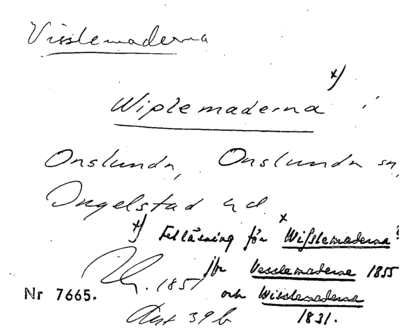 Visslemaderna
x)
Wiplemaderna i
Onslunda, Onslunda sn,
Ingelstad hd.
x) Felläsning för Wißlemaderna?
jfr Vesslemaderne 1855
1851
och Wisslemaderne
Nr 7665.
1831.
Akt 39b